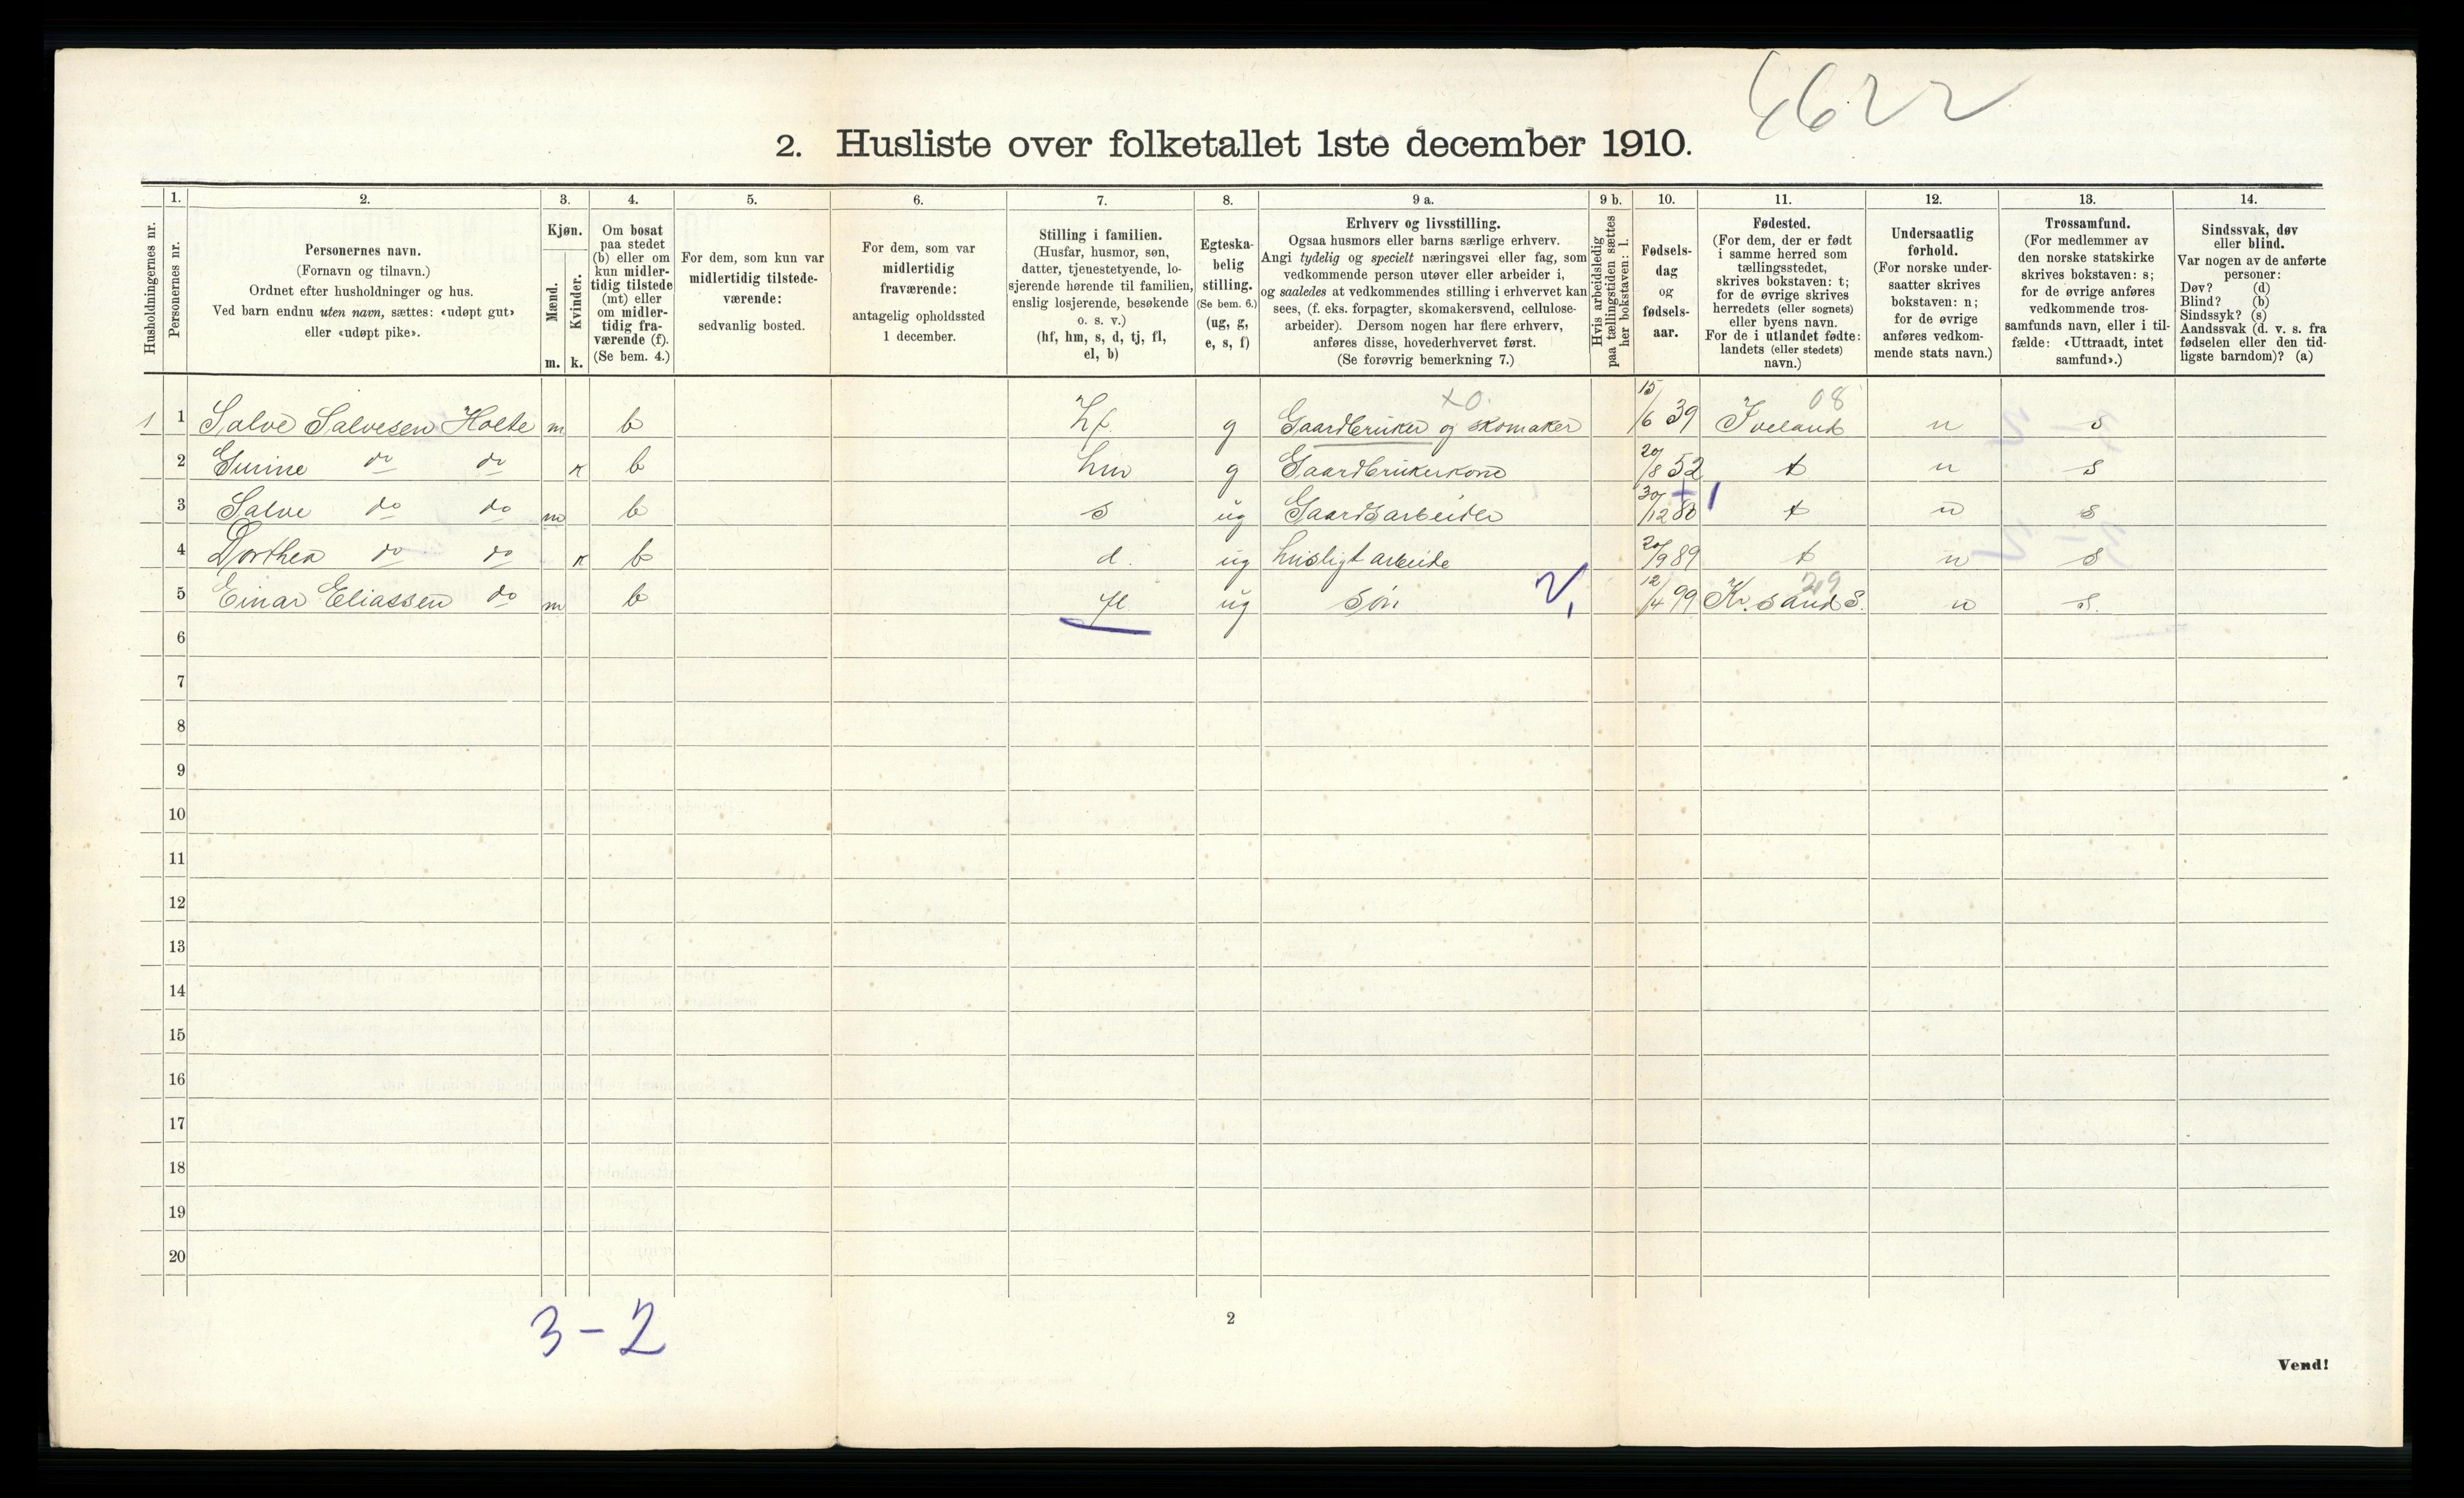 4622
2. Husliste over folketallet 1ste december 1910.
Husholdningernes nr.
1.
Personernes nr.
2.
Personernes navn.
(Fornavn og tilnavn.)
Ordnet efter husholdninger og hus.
Ved barn endnu uten navn, sættes: «udøpt gut»
eller «udøpt pike».
3.
Kjøn.
Mænd.
Kvinder.
m. k.
4.
Om bosat
paa stedet
(b) eller om
kun midler-
tidig tilstede
(mt) eller
om midler-
tidig fra-
værende (f).
(Se bem. 4.)
5.
For dem, som kun var
midlertidig tilstede-
værende:
sedvanlig bosted.
6.
For dem, som var
midlertidig
fraværende:
antagelig opholdssted
1 december.
7.
Stilling i familien.
(Husfar, husmor, søn,
datter, tjenestetyende, lo-
sjerende hørende til familien,
enslig losjerende, besøkende
o. s. v.)
(hf, hm, s, d, tj, fl,
el, b)
8.
Egteska-
belig
stilling.
(Se bem. 6.)
(ug, g,
e, s, f)
9 a.
Erhverv og livsstilling.
Ogsaa husmors eller barns særlige erhverv.
Angi tydelig og specielt næringsvei eller fag, som
vedkommende person utøver eller arbeider i,
og saaledes at vedkommendes stilling i erhvervet kan
sees, (f. eks. forpagter, skomakersvend, cellulose-
arbeider). Dersom nogen har flere erhverv,
anføres disse, hovederhvervet først.
(Se forøvrig bemerkning 7.)
9 b.
Hvis arbeidsledig
paa tællingstiden sættes
her bokstaven: l.
10.
Fødsels-
dag
og
fødsels-
aar.
11.
Fødested.
(For dem, der er født
i samme herred som
tællingsstedet,
skrives bokstaven: t;
for de øvrige skrives
herredets (eller sognets)
eller byens navn.
For de i utlandet fødte:
landets (eller stedets)
navn.)
12.
Undersaatlig
forhold.
(For norske under-
saatter skrives
bokstaven: n;
for de øvrige
anføres vedkom-
mende stats navn.)
13.
Trossamfund.
(For medlemmer av
den norske statskirke
skrives bokstaven: s;
for de øvrige anføres
vedkommende tros-
samfunds navn, eller i til-
fælde: «Uttraadt, intet
samfund».)
14.
Sindssvak, døv
eller blind.
Var nogen av de anførte
personer:
Døv? (d)
Blind? (b)
Sindssyk? (s)
Aandssvak (d. v. s. fra
fødselen eller den tid-
ligste barndom)? (a)
x0. 08
1 1 Salve Salvesen Holte m b hf g Gaardbruker og skomaker 15/6 39 Iveland n s
2 Gurine do do k b hm g Gaardbrukerkone 20/8 52 t n s
+1
3 Salve do do m b s ug Gaardsarbeider 30/12 80 t n s
4 Dorthea do do k b d. ug husligt arbeide 20/9 89 t n s
5 Einar Eliassen do m b fl ug søn 12/4 99 Kr.sand S. n s.
6
7
8
9
10
11
12
13
14
15
16
17
18
19
20
3-2
2
Vend!